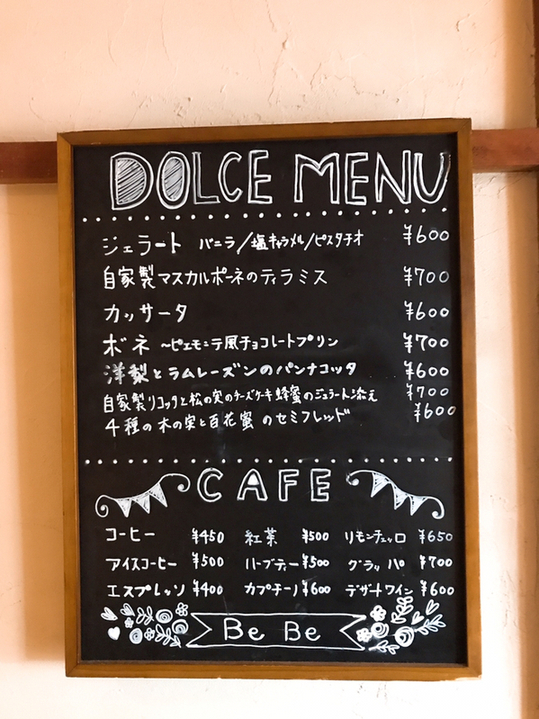 DOLCE MENU
ジェラート バニラ/塩キャラメル/ピスタチオ ¥600
自家製マスカルポーネのティラミス ¥700
カッサータ ¥600
ボネ ~ピエモンテ風チョコレートプリン ¥700
洋製とラムレーズンのパンナコッタ ¥600
自家製リコッタと松の実のチーズケーキ 蜂蜜のジェラート添え ¥700
4種の木の実と百花蜜のセミフレッド ¥600
CAFE
コーヒー ¥450 紅茶 ¥500 リモンチェッロ ¥650
アイスコーヒー ¥500 ハーブティー ¥500 グラッパ ¥700
エスプレッソ ¥400 カプチーノ ¥600 デザートワイン ¥600
Be Be